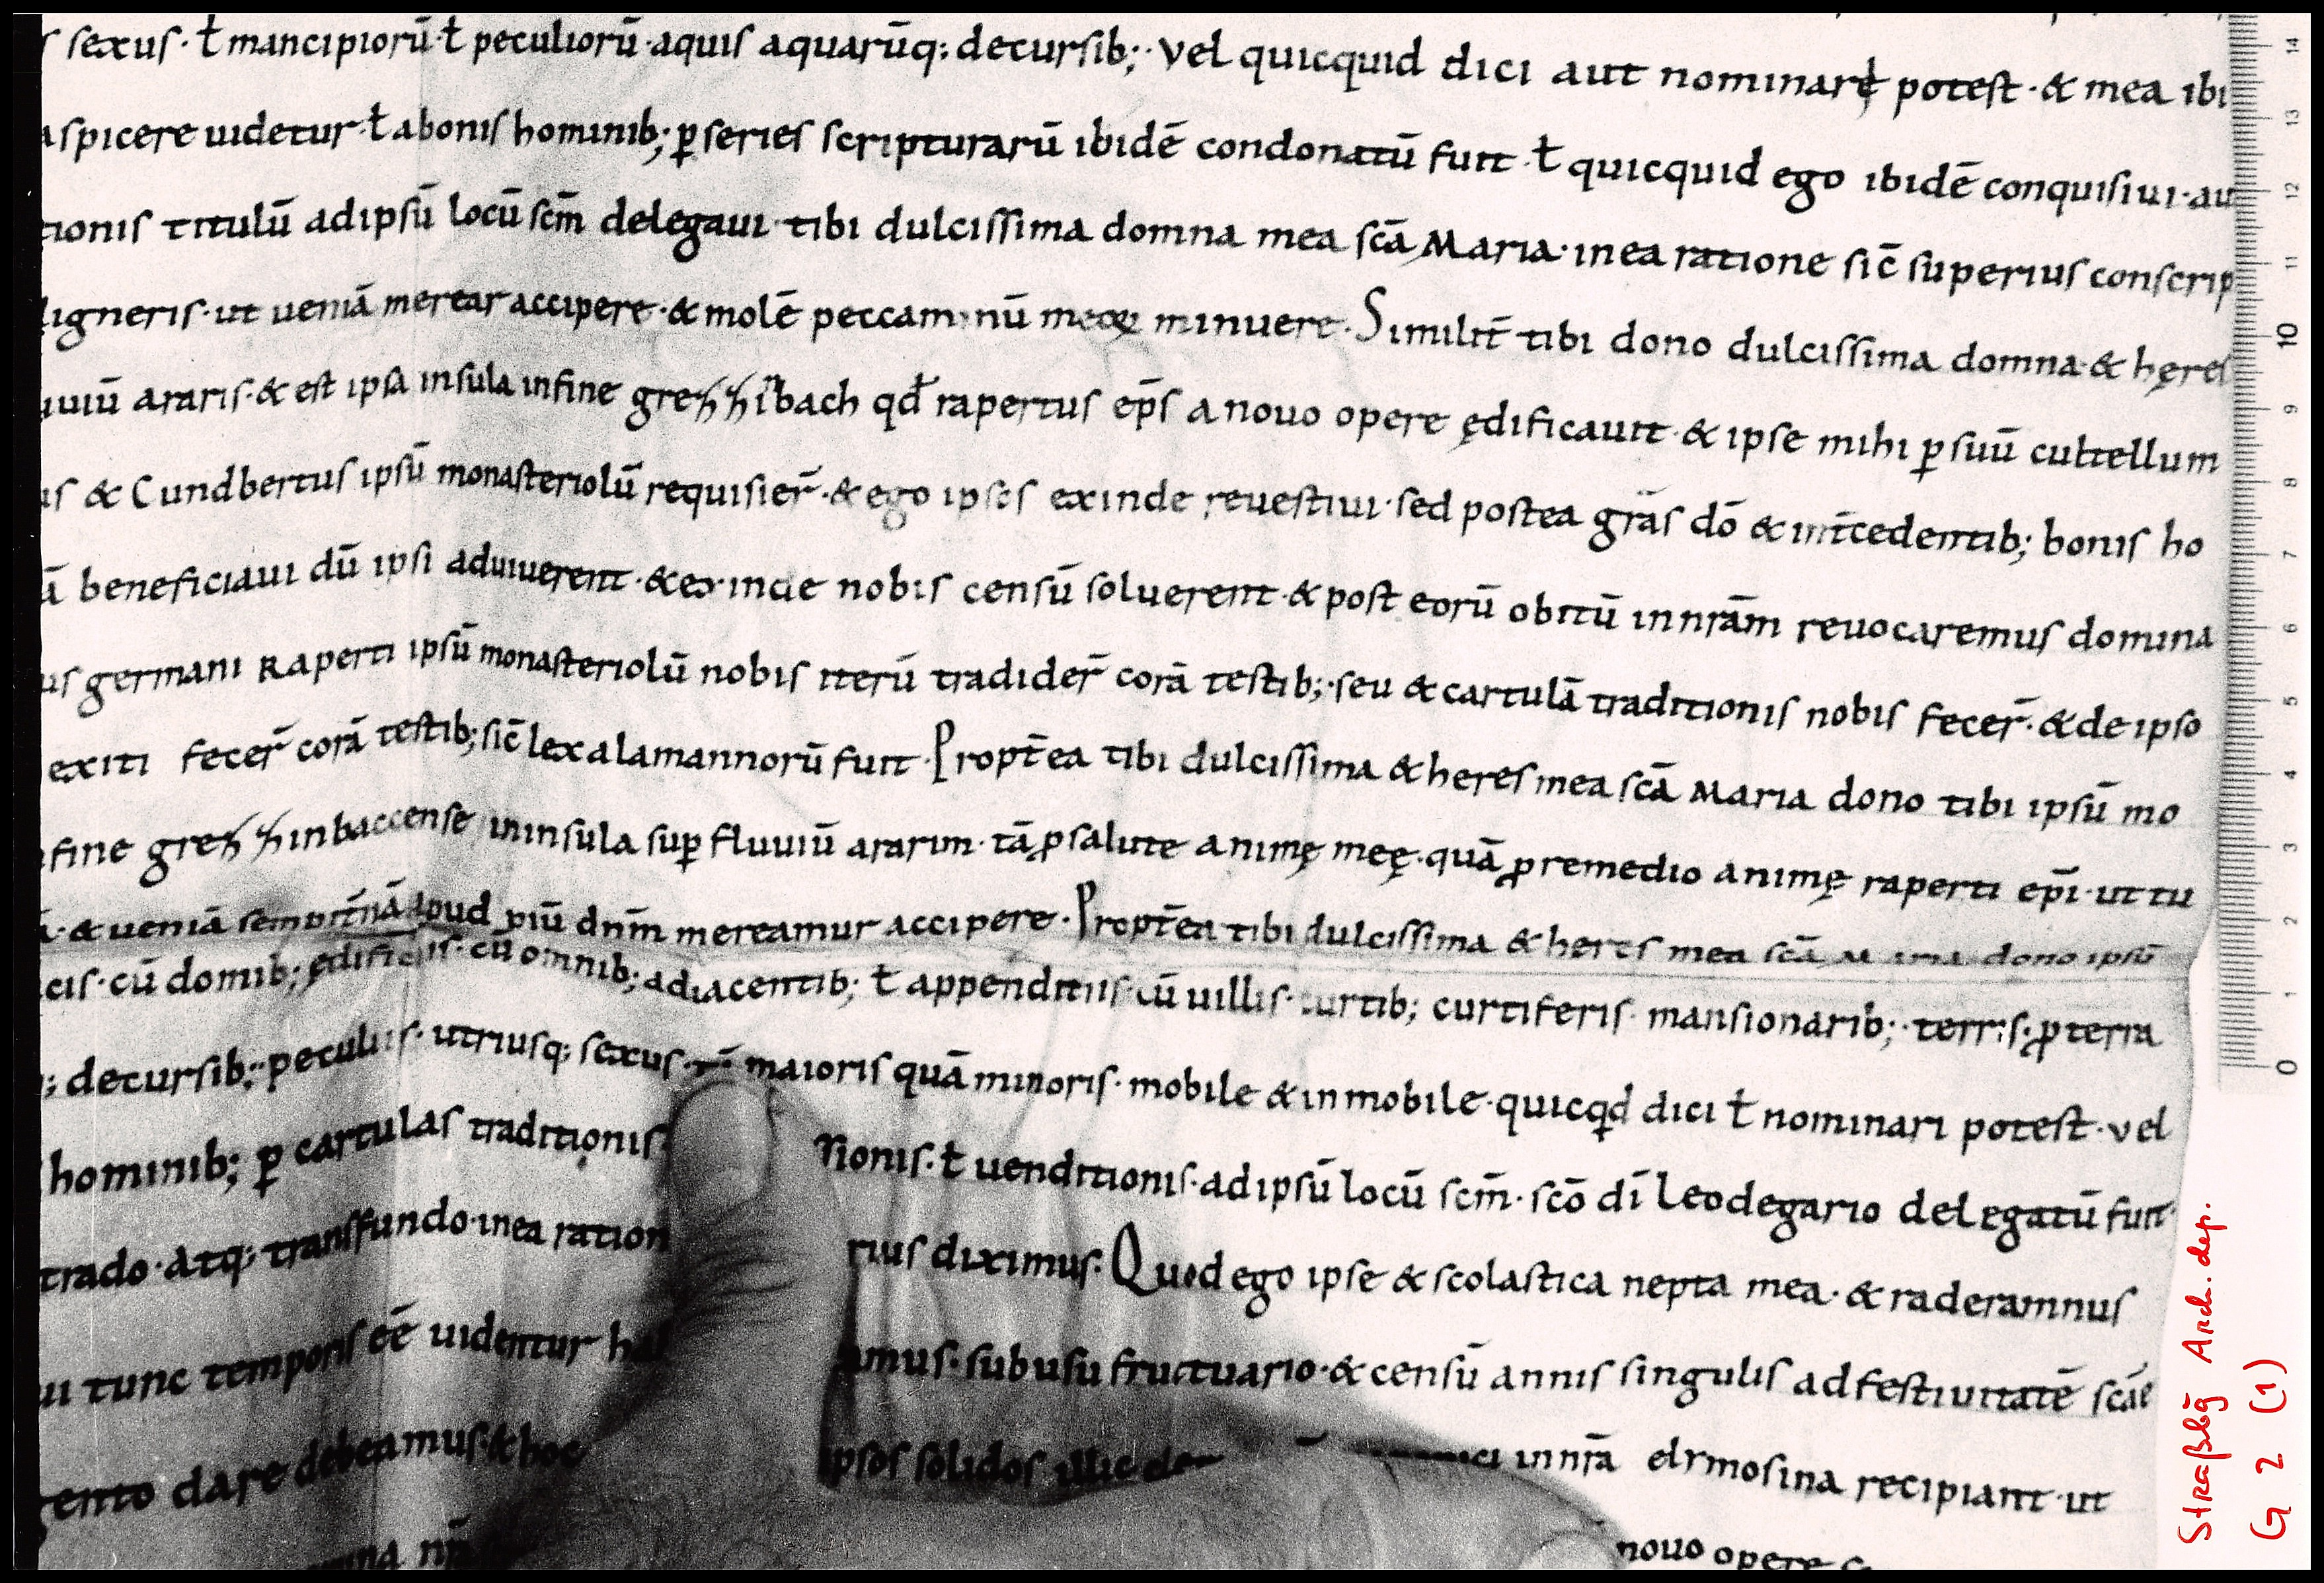 sexus · ł mancipiorū · ł peculiorū · aquis aquarūq; decursib; · vel quicquid dici aut nominari ł potest · & mea ibi
aspicere uidetur · ł abonis hominib; ꝑ series scripturarū ibidē condonatū fuit · ł quicquid ego ibidē conquisiui · au
tionis titulū adipsū locū scm̄ delegaui · tibi dulcissima domna mea scā Maria · inea ratione sic̄ superius conscrip
digneris · ut ueniā merear accipere · & molē peccaminū meoꝝ minuere · Similit̄ tibi dono dulcissima domna · & heres
uuiū araris · & est ipsa insula infine grehhinbach qđ rapertus ep̄s anouo opere ędificauit · & ipse mihi ꝑ suū cultellum
us & Cundbertus ipsū monasteriolū requisier̄ · & ego ipsos exinde reuestiui · sed postea grās dō & int̄cedentib; bonis ho
ā beneficiaui dū ipsi aduiuerent · & exinde nobis censū soluerent · & post eorū obitū innrām reuocaremus domina
us germani Raperti ipsū monasteriolū nobis iterū tradider̄ corā testib; · seu & cartulā traditionis nobis fecer̄ · & de ipso
exiti fecer̄ corā testib; sic̄ lex alamannorū fuit · Propt̄ea tibi dulcissima & heres mea scā Maria dono tibi ipsū mo
fine grehhinbaccense ininsula suꝑ fluuiū ararim · tā ꝓ salute animę meę · quā ꝓ remedio animę raperti ep̄i · ut tu
ā · & ueniā sempit̄nā apud piū dnm̄ mereamur accipere · Propt̄ea tibi dulcissima & heres mea scā Maria dono ipsū
cis · cū domib; ędificiis · cū omnib; adiacentib; ł appenditiis · cū uillis · curtib; curtiferis · mansionarib; · terris · ꝓ terra
; decursib; · peculiis · utriusq; sexus · maioris quā minoris · mobile & inmobile · quicqđ dici ł nominari potest · vel
hominib; ꝑ cartulas traditionis nionis · ł uenditionis · adipsū locū scm̄ · scō dī Leodegario delegatū fuit
trado · atq; transfundo · inea ration rius diximus · Quod ego ipse & scolastica nepta mea · & raderamnus
ui tunc temporis eē uidentur ha amus · sub usu fructuario · & censū annis singulis ad festiuitatē scāe
gento dare debeamus · & hoc ipsos solidos illic innrā elymosina recipiant · ut
nouo opere
14
13
12
11
10
9
8
7
6
5
4
3
2
1
0
Straßbg Arch. dep.
G 2 (1)